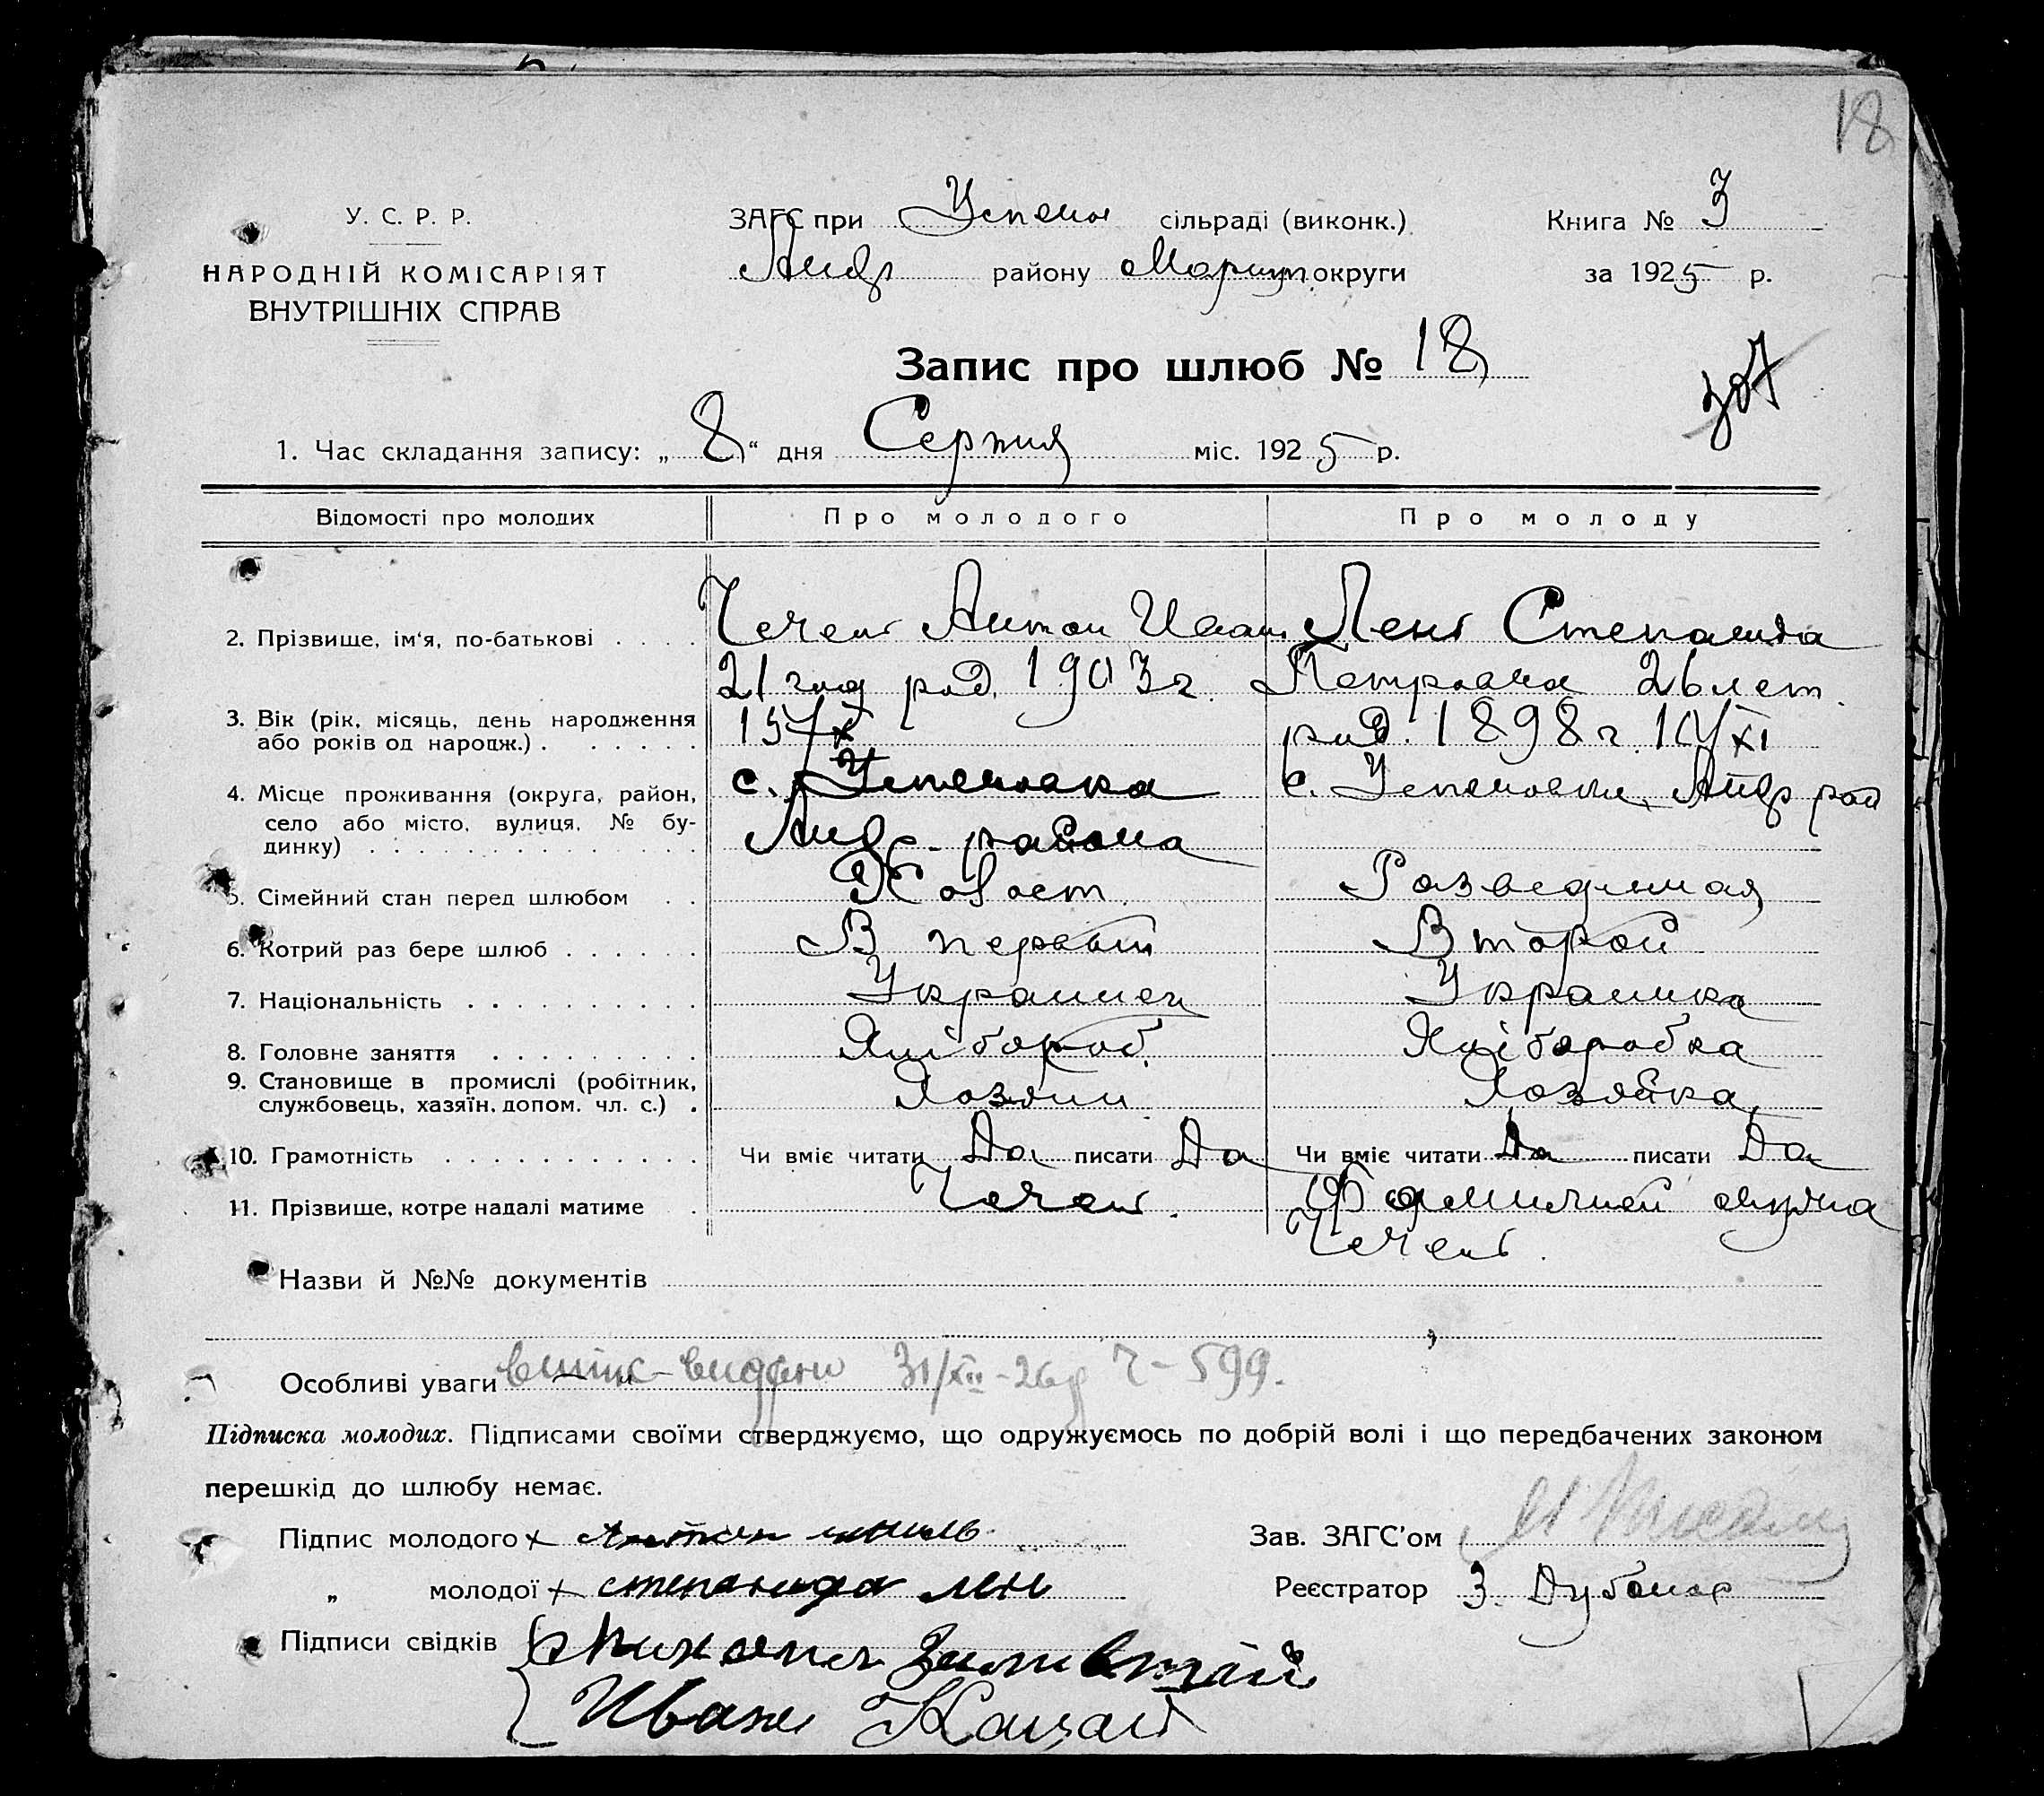 18
У. С. Р. Р.
НАРОДНІЙ КОМІСАРІЯТ
ВНУТРІШНІХ СПРАВ
ЗАГС при Успенов сільраді (виконк.)
Андр району Мариуп округи
Книга № 3
за 1925 р.
Запис про шлюб № 18
1. Час складання запису: „ 8 “ дня Серпня міс. 1925 р.
Відомості про молодих Про молодого Про молоду
2. Прізвище, ім'я, по-батькові Чечель Антон Иван Лень Степанида
21 год род. 1903 г. Петровна 26 лет.
3. Вік (рік, місяць, день народження
або років од народж.)
15/X род. 1898 г. 10/XI
4. Місце проживання (округа, район,
село або місто, вулиця, № бу-
динку)
с. Успеновка с. Успеновка, Андр рай
Андр. района
5. Сімейний стан перед шлюбом Холост. Разведенная
6. Котрий раз бере шлюб В первый Второй
7. Національність Украинец Украинка
8. Головне заняття Хлібороб. Хліборобка
9. Становище в промислі (робітник,
службовець, хазяїн, допом. чл. с.)
Хозяин Хозяйка
10. Грамотність Чи вміє читати Да писати Да Чи вміє читати Да писати Да
11. Прізвище, котре надалі матиме Чечель. Фамилией мужа
Чечель.
Назви й №№ документів
Особливі уваги випис видано 31/XII-26 р Ч-599.
Підписка молодих. Підписами своїми стверджуємо, що одружуємось по добрій волі і що передбачених законом
перешкід до шлюбу немає.
Підпис молодого х Антон
„ молодої х степанида лен
Підписи свідків
Иван Кацай
Зав. ЗАГС'ом
Реєстратор З. Дубина